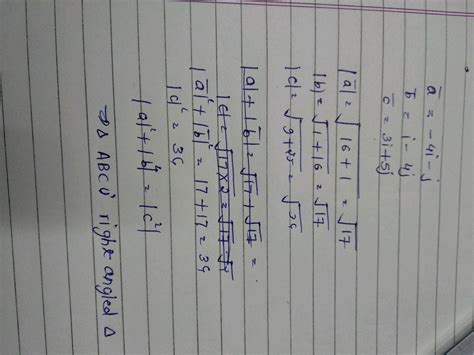 a̅ = -4i - j
b̅ = i - 4j
c̅ = 3i + 5j
|a̅| = √16 + 1 = √17
|b| = √1 + 16 = √17
|c| = √9 + 25 = √34
|a| + |b| = √17 + √17 =
|c| = √17×2 = √17
|a̅|² + |b̅|² = 17 + 17 = 34
|c|² = 34
|a|² + |b|² = |c²|
⇒ Δ ABC is right angled Δ